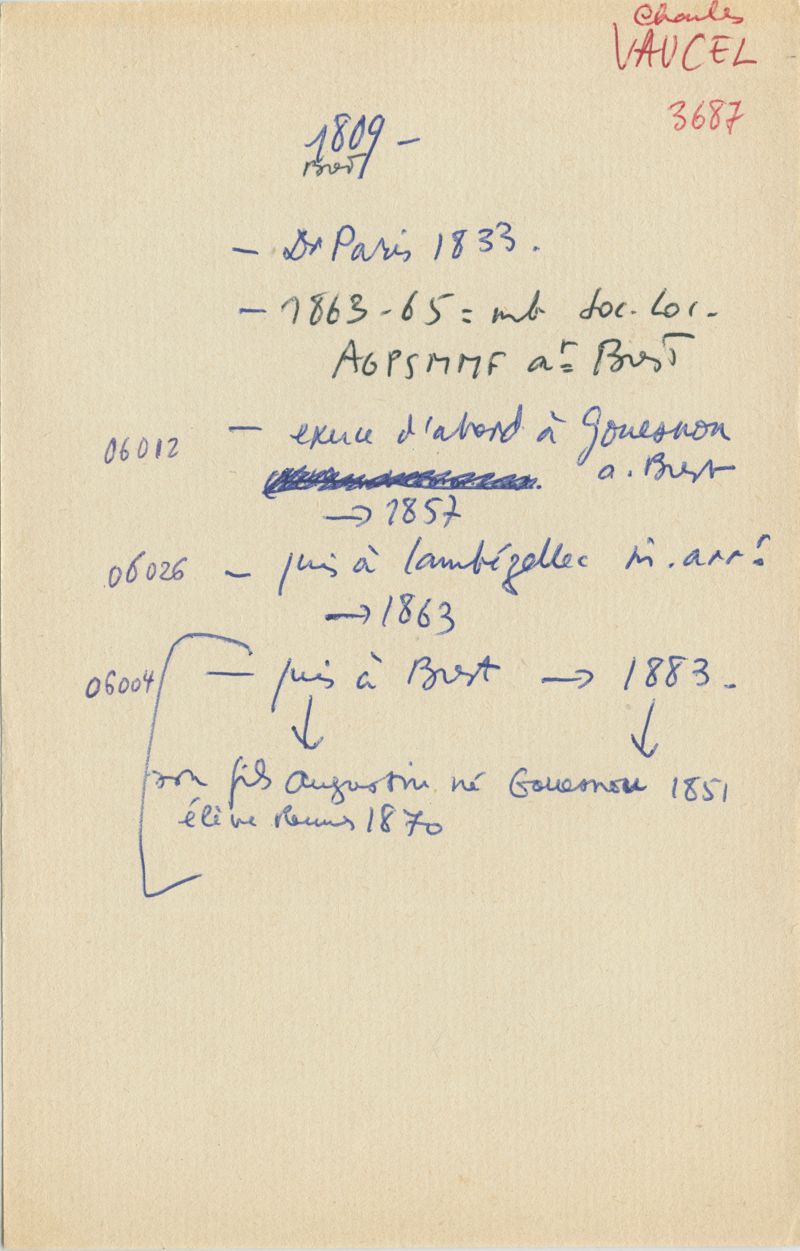 Charles
VAUCEL
3687
1809 -
Brest
- Dr Paris 1833.
- 1863-65 = mb Soc. Loc.
AGPSMMF arr Brest
06012 - exerce d'abord à Gouesnou
a. Brest
→ 1857
06026 - puis à Lambézellec m. arrt
→ 1863
06004 - puis à Brest → 1883.
son fils Augustin né Gouesnou 1851
élève Rennes 1870